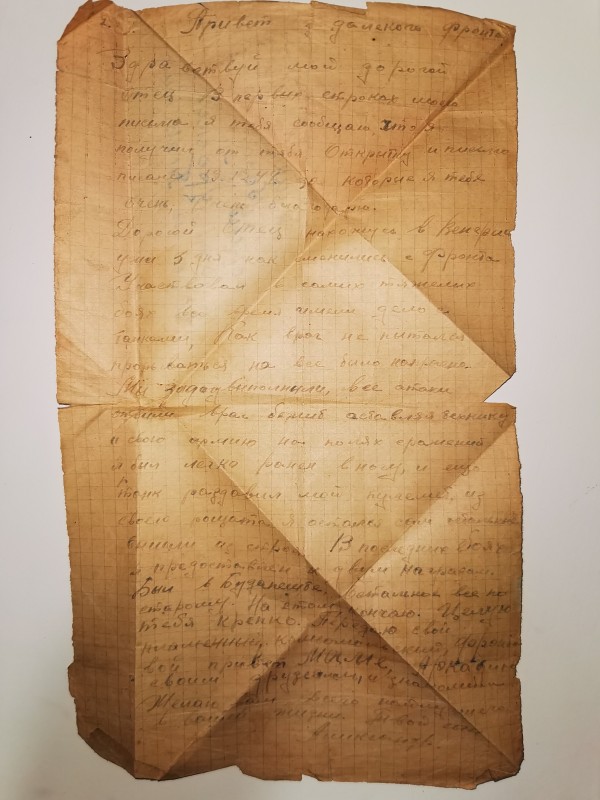 Привет с далекого фронта
Здравствуй мой дорогой
Отец В первых строках моего
письма я тебе сообщаю что я
получил от тебя Открытку и письмо
за которые я тебя
очень, благодарю.
Дорогой Отец нахожусь в Венгрии
уже 5 дня как сменились с Фронта
Участвовал в самых тяжелых
боях во время имели дело с
танками, Как враг не пытался
прорваться на все было напрасно.
Мы задачу выполнили, все атаки
отбили враг бежит аставляя технику
и свою армию на полях сражений
я был легко ранен в ногу, и еще
танк раздавил мой пулемет, из
своего я остался сам
вышли из строя. В последних боях
я предоставлен к двум наградам.
Был в Будапеште, Остальное все по
старому. На этом кончаю. Целую
тебя крепко. Передаю свой
пламенный, комсомольский,
привет
своим друзьям, и знакомым
Желаю вам всего
в вашей жизни твой сын